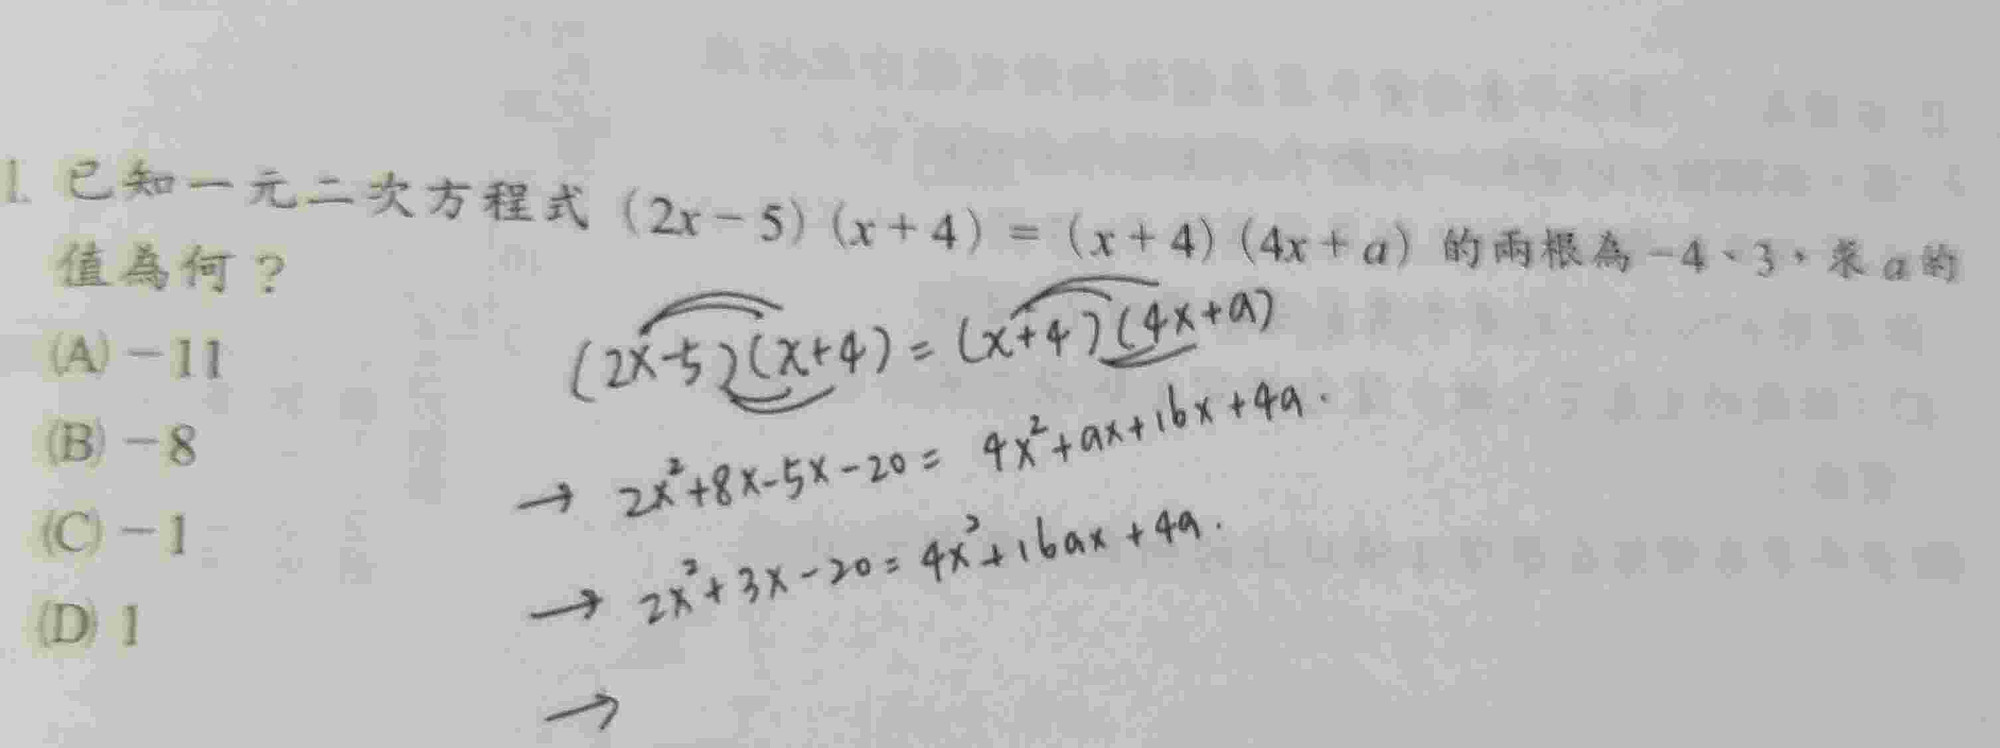 1. 已知一元二次方程式（2x－5）（x＋4）＝（x＋4）（4x＋a）的兩根為－4、3，求a的
值為何？
(A)－11
(B)－8
(C)－1
(D) 1
(2x-5)(x+4)=(x+4)(4x+a)
→ 2x²+8x-5x-20= 4x²+ax+16x+4a.
→ 2x²+3x-20=4x²+16ax+4a.
→